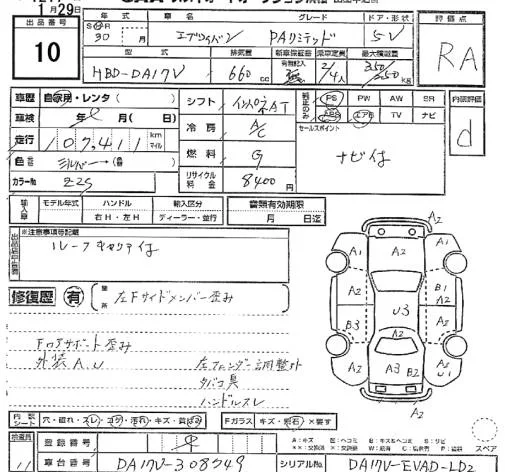 29日
出品番号
10
年式 車名 グレード ドア・形状
30 エブリイバン PAリミテッド 5-V
評価点
RA
排気量 新車保証書 乗車定員 最大積載量
HBD-DA17V 660cc 有 無 2/4人 350/250kg
車歴 自家用・レンタ( )
車検 年 月( )
走行 107,411 km マイル
色 シルバー→( )
カラーNo Z2S
シフト インパネAT
冷房 A/C
燃料 G
リサイクル料金 8400円
純正のみ
PS PW AW SR
ABS エアB TV ナビ
セールスポイント
ナビ付
内装評価
d
輸入車 モデル年式 ハンドル 輸入区分
右H・左H ディーラー・並行
書類有効期限
月 日迄
※注意事項等記載
ルーフキャリア付
修復歴 有 箇所 左Fサイドメンバー歪み
Fロアサポート歪み
外装A.U
左フェンダー調整外
タバコ臭
ハンドルスレ
A2
A1 A2 A2
A2 U3 B1
B3 A2 A2
A2 A3 B2 A2 U1
A2
内装シート 穴・破れ・スレ・コゲ・汚れ・キズ・黄ばみ
Fガラス キズ・飛石・×要す
検査員
11
登録番号
車台番号 DA17V-308749
A:キズ E:エクボ B:ヘコミ
スペア
シリアルNo DA17V-EVAD-LD2